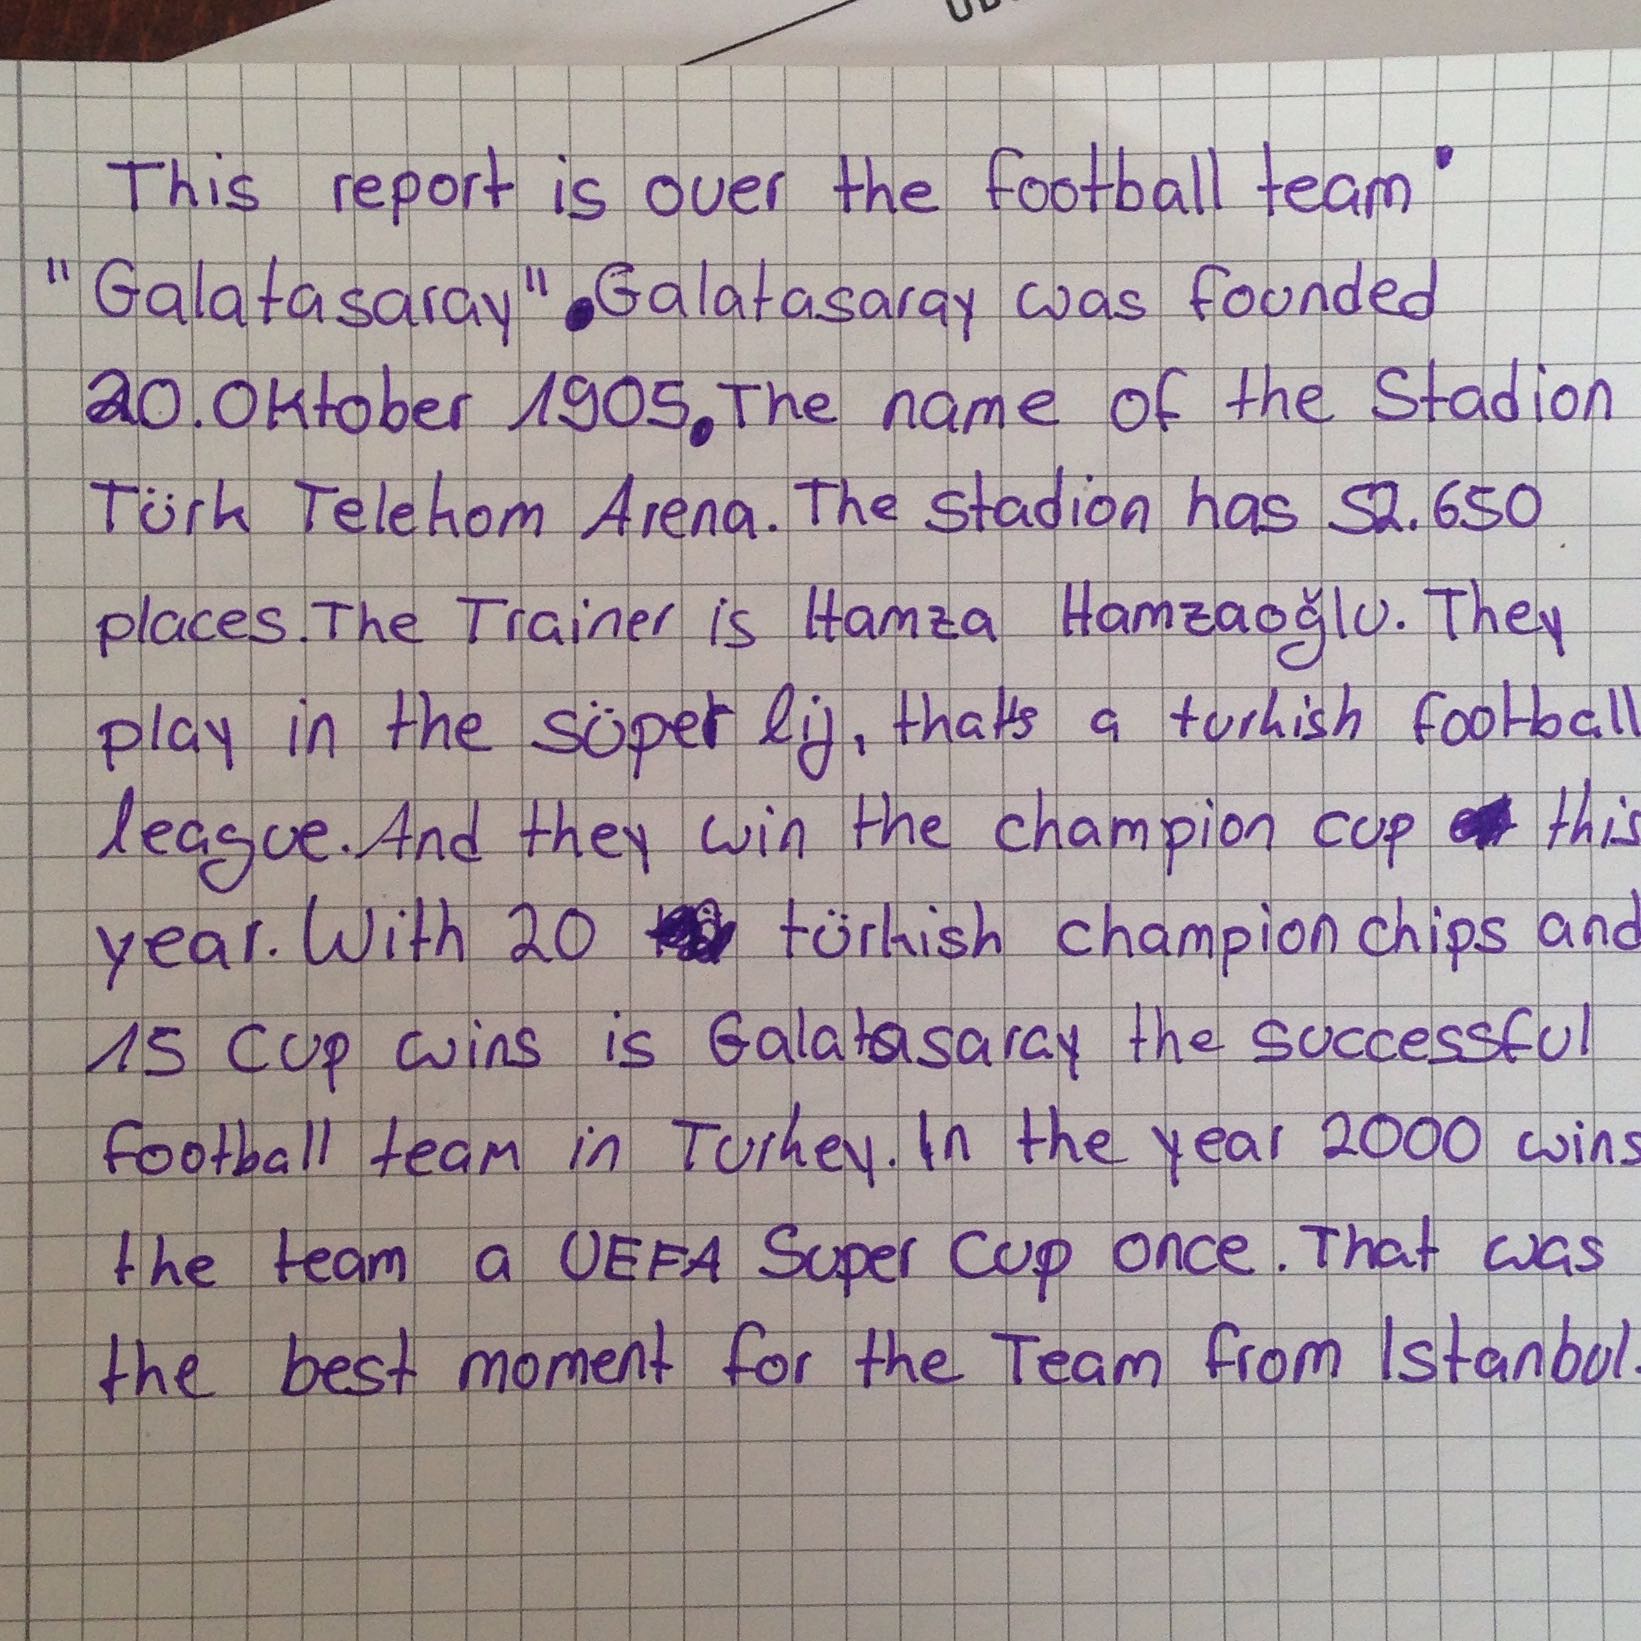 This report is over the football team
"Galatasaray". Galatasaray was founded
20. Oktober 1905. The name of the Stadion
Türk Telekom Arena. The stadion has 52.650
places. The Trainer is Hamza Hamzaoğlu. They
play in the süper lij, thats a turkish football
league. And they win the champion cup this
year. With 20 türkish champion chips and
15 Cup wins is Galatasaray the successful
football team in Turkey. In the year 2000 wins
the team a UEFA Super Cup once. That was
the best moment for the Team from Istanbul.